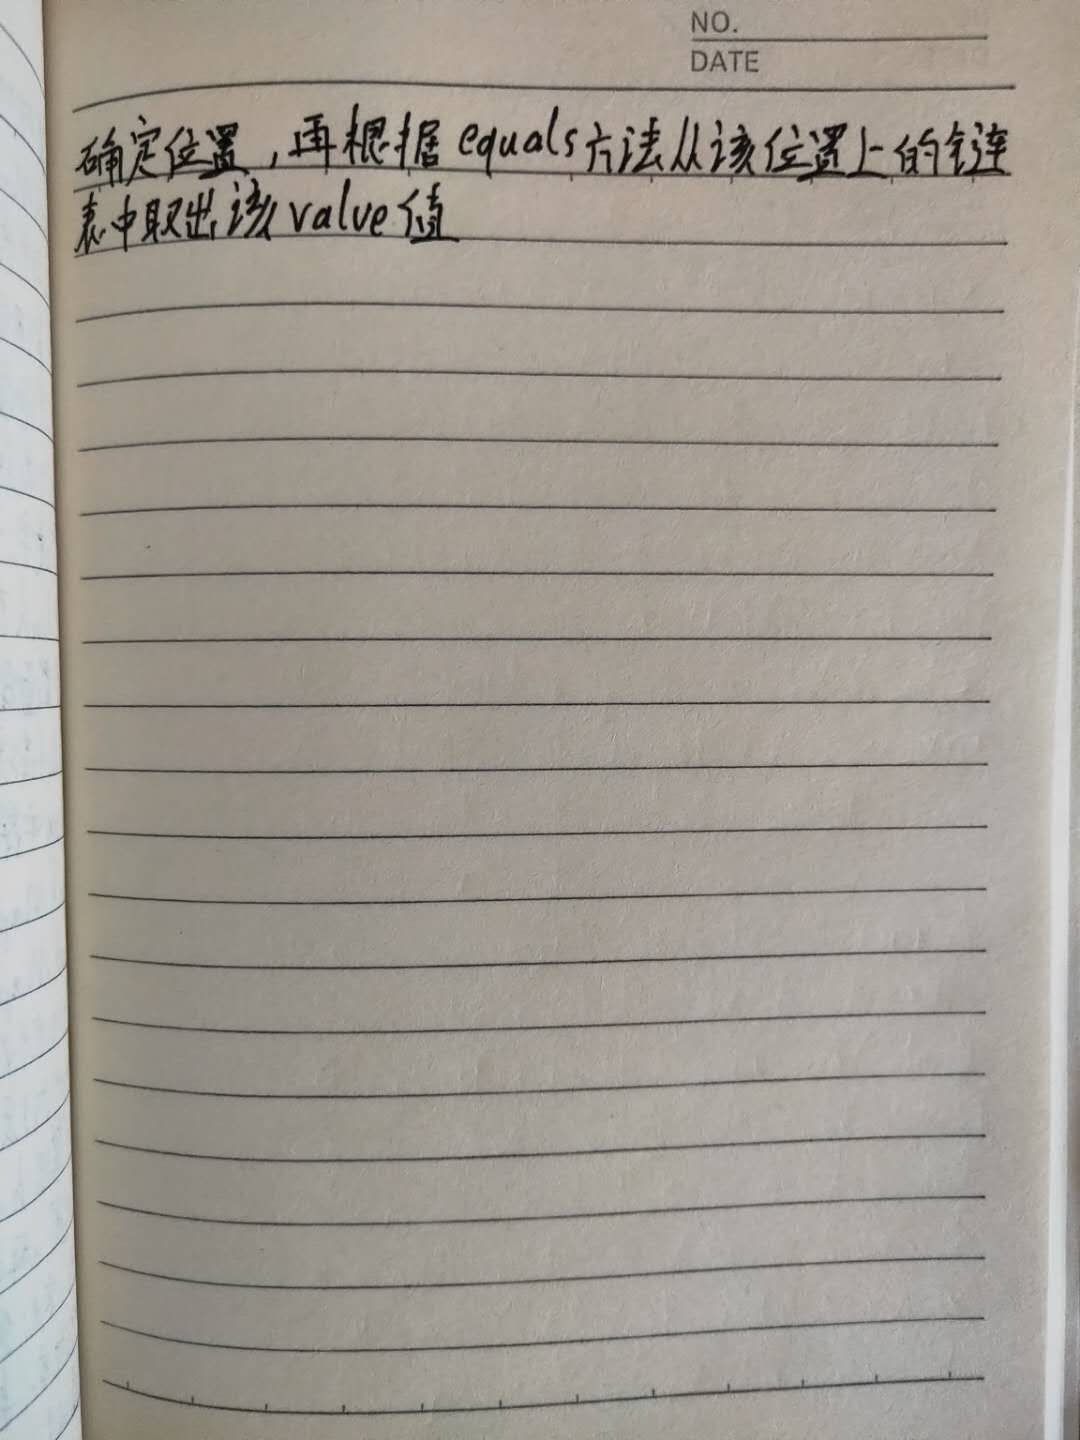 NO.
DATE
确定位置,再根据equals方法从该位置上的链
表中取出该value值